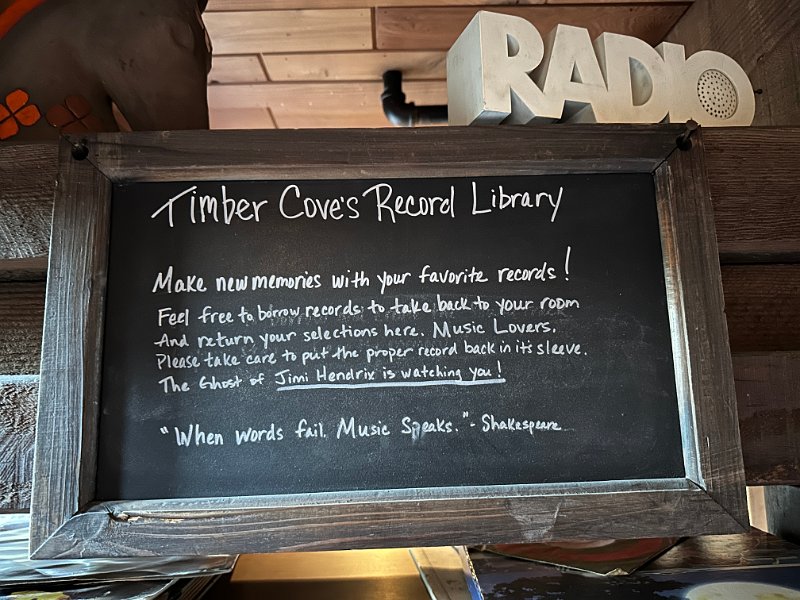 RADIO
Timber Cove's Record Library
Make new memories with your favorite records!
Feel free to borrow records to take back to your room
And return your selections here. Music Lovers.
Please take care to put the proper record back in its sleeve.
The Ghost of Jimi Hendrix is watching you!
"When words fail. Music Speaks." - Shakespeare